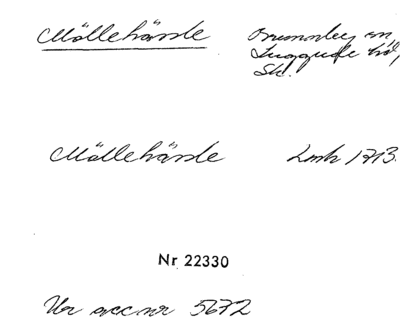 Möllehärsle Brunnby sn,
Luggude hd,
Sk.
Möllehärsle Lmh 1713.
Nr 22330
Ur acc nr 5672